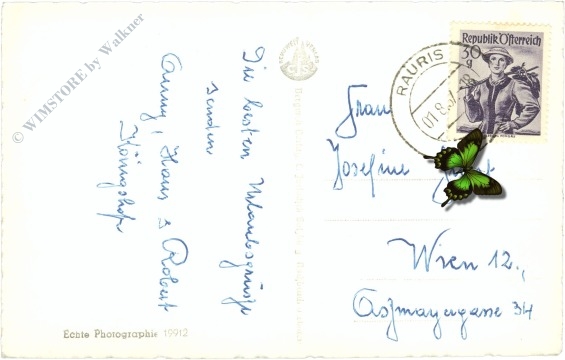 © WIMSTORE by Walkner
Die besten Urlaubsgrüße
senden
Anny, Hans & Robert
Königshofer
Echte Photographie 19912
Republik Österreich
30
g
RAURIS
01.8.57-18
Frau
Josefine
Wien 12.,
Aßmayergasse 34